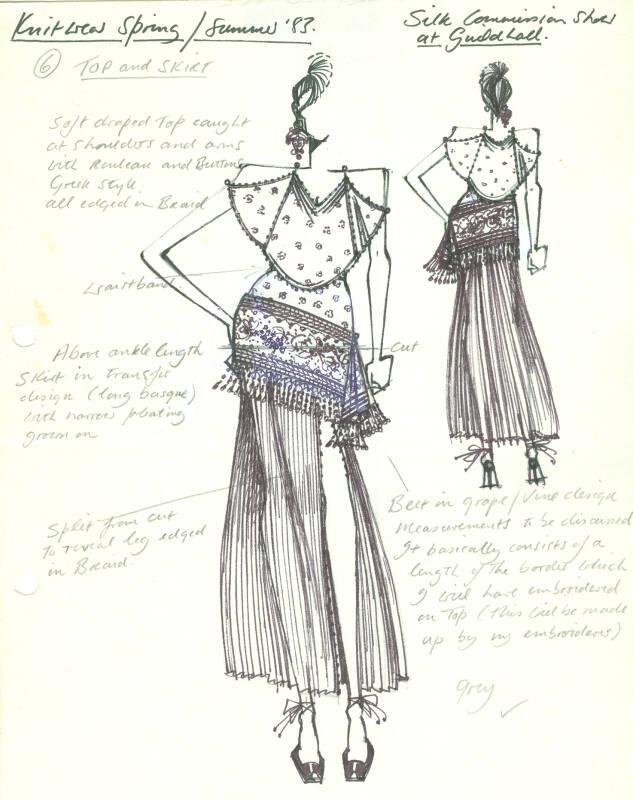 Knitwear Spring/Summer '83.
Silk Commission Show
at Guildhall.
6 TOP and SKIRT
Soft draped Top caught
at shoulders and arms
with Rouleau and Buttons
Greek style.
all edged in Braid
Waistband
Cut
Above ankle length
Skirt in Transfer
design (long basque)
with narrow pleating
grown on
Split from cut
to reveal leg edged
in Braid.
Belt in grape/Vine design
Measurements to be discussed
It basically consists of a
length of the border which
I will have embroidered
on Top (this will be made
up by my embroiderer)
Grey